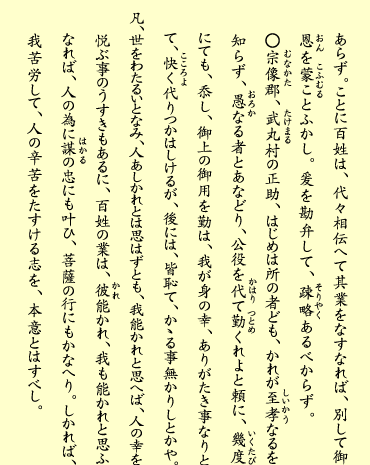 あらず。ことに百姓は、代々相伝へて其業をなすなれば、別して御
恩を蒙ことふかし。爰を勘弁して、疎略あるべからず。
〇宗像郡、武丸村の正助、はじめは所の者ども、かれが至孝なるを
知らず、愚なる者とあなどり、公役を代て勤くれよと頼に、幾度
にても、忝し、御上の御用を勤は、我が身の幸、ありがたき事なりと
て、快く代りつかはしけるが、後には、皆恥て、かゝる事無かりしとかや。
凡、世をわたるいとなみ、人あしかれとは思はずとも、我能かれと思へば、人の幸を
悦ぶ事のうすきもあるに、百姓の業は、彼能かれ、我も能かれと思ふ
なれば、人の為に謀の忠にも叶ひ、菩薩の行にもかなへり。しかれば、
我苦労して、人の辛苦をたすける志を、本意とはすべし。